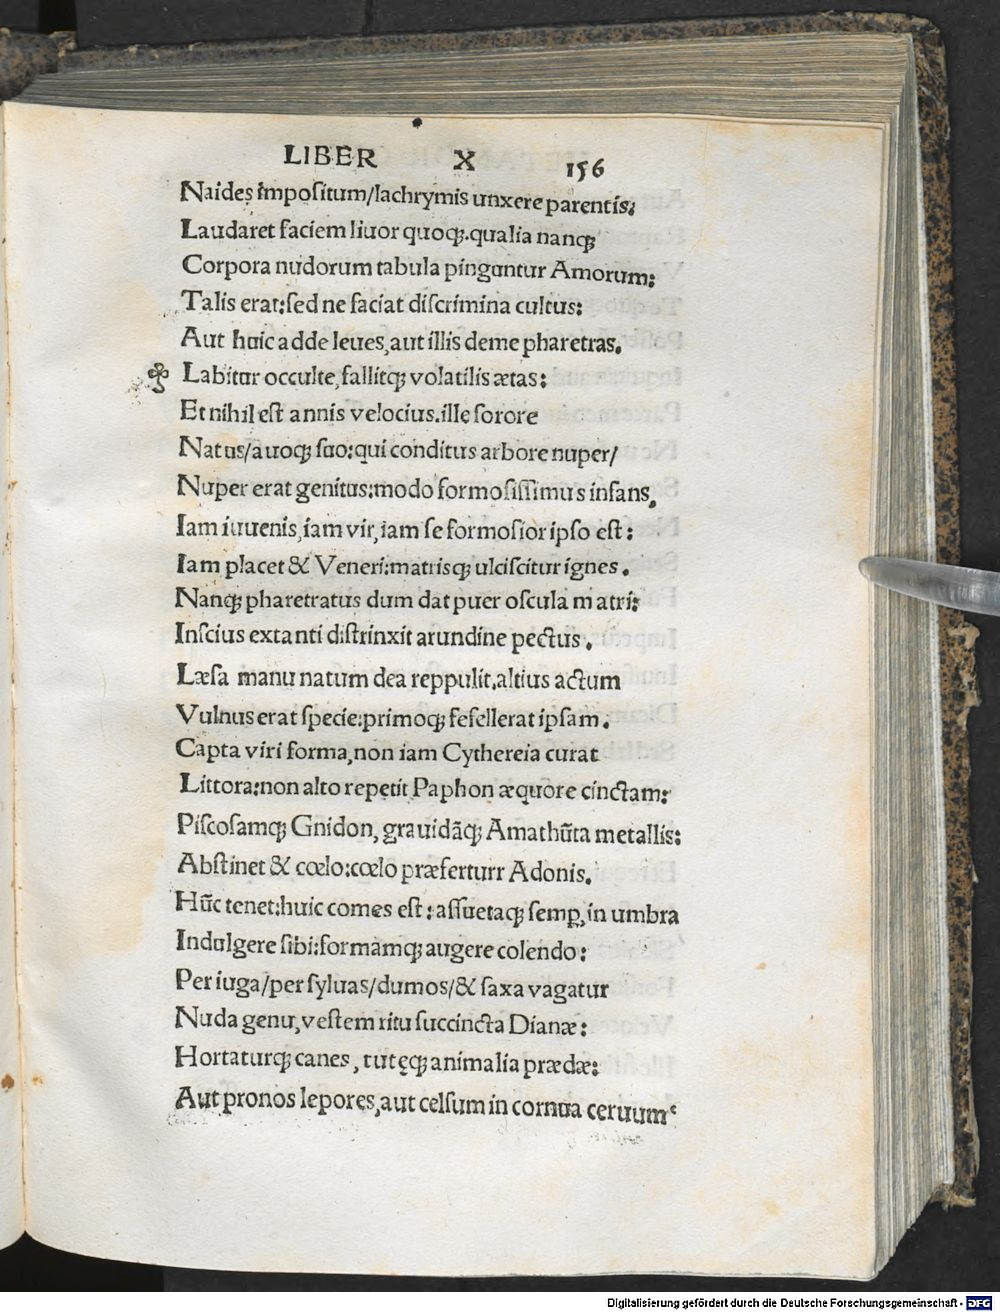 LIBER X 156
Naides impositum/lachrymis unxere parentis:
Laudaret faciem liuor quoqꝫ.qualia nanqꝫ
Corpora nudorum tabula pinguntur Amorum:
Talis erat:sed ne faciat discrimina cultus:
Aut huic adde leues,aut illis deme pharetras.
Labitur occulte,fallitqꝫ volatilis ætas:
Et nihil est annis velocius.ille sorore
Natus/auoqꝫ suo:qui conditus arbore nuper/
Nuper erat genitus:modo formosissimus infans,
Iam iuuenis,iam vir,iam se formosior ipso est:
Iam placet & Veneri:matrisqꝫ ulciscitur ignes.
Nanqꝫ pharetratus dum dat puer oscula matri:
Inscius extanti distrinxit arundine pectus.
Læsa manu natum dea reppulit.altius actum
Vulnus erat specie:primoqꝫ fefellerat ipsam.
Capta viri forma,non iam Cythereia curat
Littora:non alto repetit Paphon æquore cinctam:
Piscosamqꝫ Gnidon, grauidãqꝫ Amathũta metallis:
Abstinet & cœlo:cœlo præferturr Adonis.
Hũc tenet:huic comes est:assuetaqꝫ semp̱,in umbra
Indulgere sibi:formamqꝫ augere colendo:
Per iuga/per syluas/dumos/& saxa vagatur
Nuda genu,vestem ritu succincta Dianæ:
Hortaturqꝫ canes, tutęqꝫ animalia prædæ:
Aut pronos lepores,aut celsum in cornua ceruum
Digitalisierung gefördert durch die Deutsche Forschungsgemeinschaft - DFG